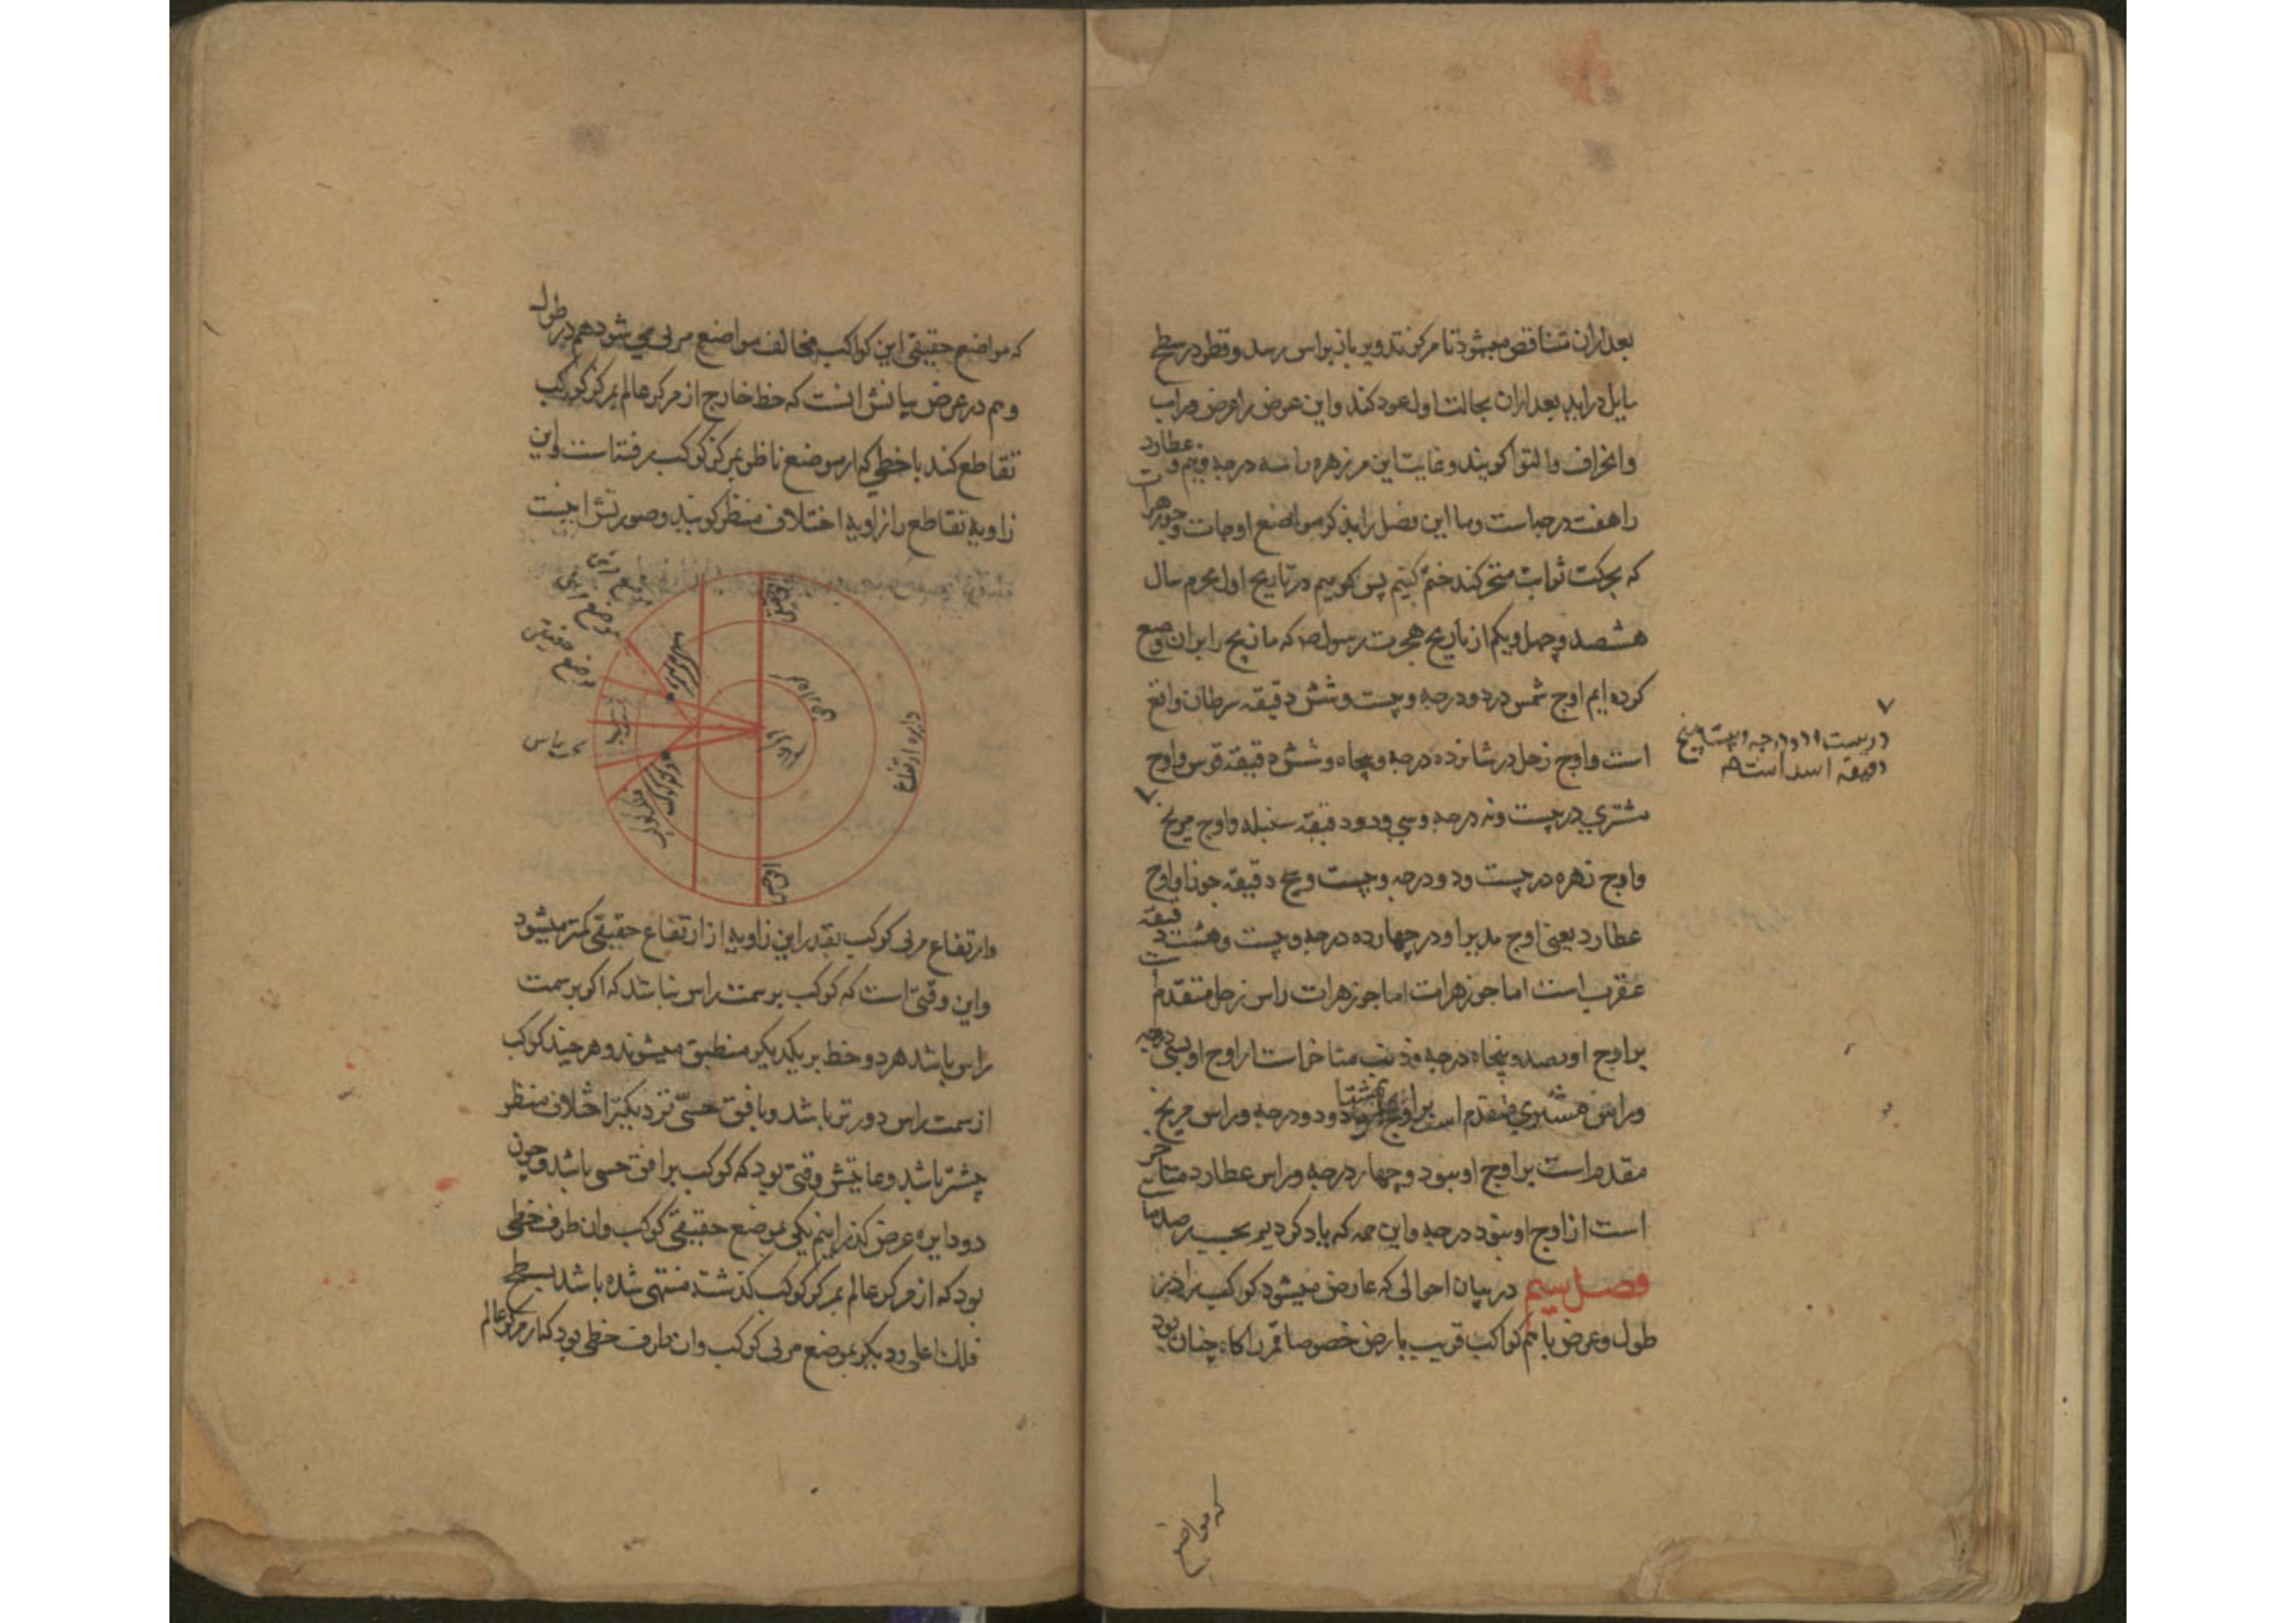 بعد ازان متناقص میشود تا مرکز تدویر باز براس رسد و قطر در سطح
مایل دراید بعد ازان بحالت اول عود کند و این عرض را عرض وراب
وانحراف والتوا کویند و غایت این مر زهره را سه درجه و نیم و عطارد
را هفت درجه است و ما این فصل را بذکر مواضع اوجات و جوزهرات
که بحرکت ثوابت متحرکند ختم کنیم پس کوییم در تاریخ اول محرم سال
هشصد و چهل و یکم از تاریخ هجرت رسول که ما زیج را بران وضع
کرده ایم اوج شمس در دو درجه و بیست و شش دقیقه سرطان واقع
است و اوج زحل در شانزده درجه و پنجاه و شش دقیقه قوس و اوج
مشتری در بیست و نه درجه و سی و دو دقیقه سنبله و اوج مریخ
در بیست و دو درجه و بیست و پنج
دقیقه اسد است
و اوج زهره در بیست و دو درجه و بیست و پنج دقیقه جوزا و اوج
عطارد یعنی اوج مدیر او در چهارده درجه و بیست و هشت دقیقه
عقرب است اما جوزهرات اما جوزهرات راس زحل متقدم است
بر اوج او بصد و پنجاه درجه و ذنب متاخر است از اوج او بسی درجه
و راس مشتری متقدم است بر اوج او بهشتاد و دو درجه و راس مریخ
مقدم است بر اوج او بنود و چهار درجه و راس عطارد متاخر
است از اوج او بنود درجه و این همه که یاد کردیم بحسب رصد ماست
فصل سیم در بیان احوالی که عارض میشود کواکب را در
طول و عرض با هم کواکب قریب بارض خصوصا قمر را کاه چنان بود
که مواضع
که مواضع حقیقی این کواکب مخالف مواضع مریی می شود هم در طول
و هم در عرض بیانش انست که خط خارج از مرکز عالم بمرکز کوکب
تقاطع کند با خطی که از موضع ناظر بمرکز کوکب رفته است و این
زاویه تقاطع را زاویه اختلاف منظر کویند و صورتش اینست
موضع مریی
موضع حقیقی
سمت راس
دایره ارتفاع
مرکز کوکب
کره زمین
مرکز عالم
مرکز کوکب
افق حسی
وارتفاع مریی کوکب بقدر این زاویه از ارتفاع حقیقی کمتر میشود
و این وقتی است که کوکب بر سمت راس نباشد که اکر بر سمت
راس باشد هر دو خط بر یکدیکر منطبق میشوند و هر چند کوکب
از سمت راس دورتر باشد و بافق حسی نزدیکتر اختلاف منظر
بیشتر باشد و غایتش وقتی بود که کوکب بر افق حسی باشد و چون
دو دایره عرض کذرانیم یکی بموضع حقیقی کوکب وان طرف خطی
بود که از مرکز عالم بمرکز کوکب کذشته منتهی شده باشد بسطح
فلک اعلی و دیکر بموضع مریی کوکب وان طرف خطی بود که از مرکز عالم